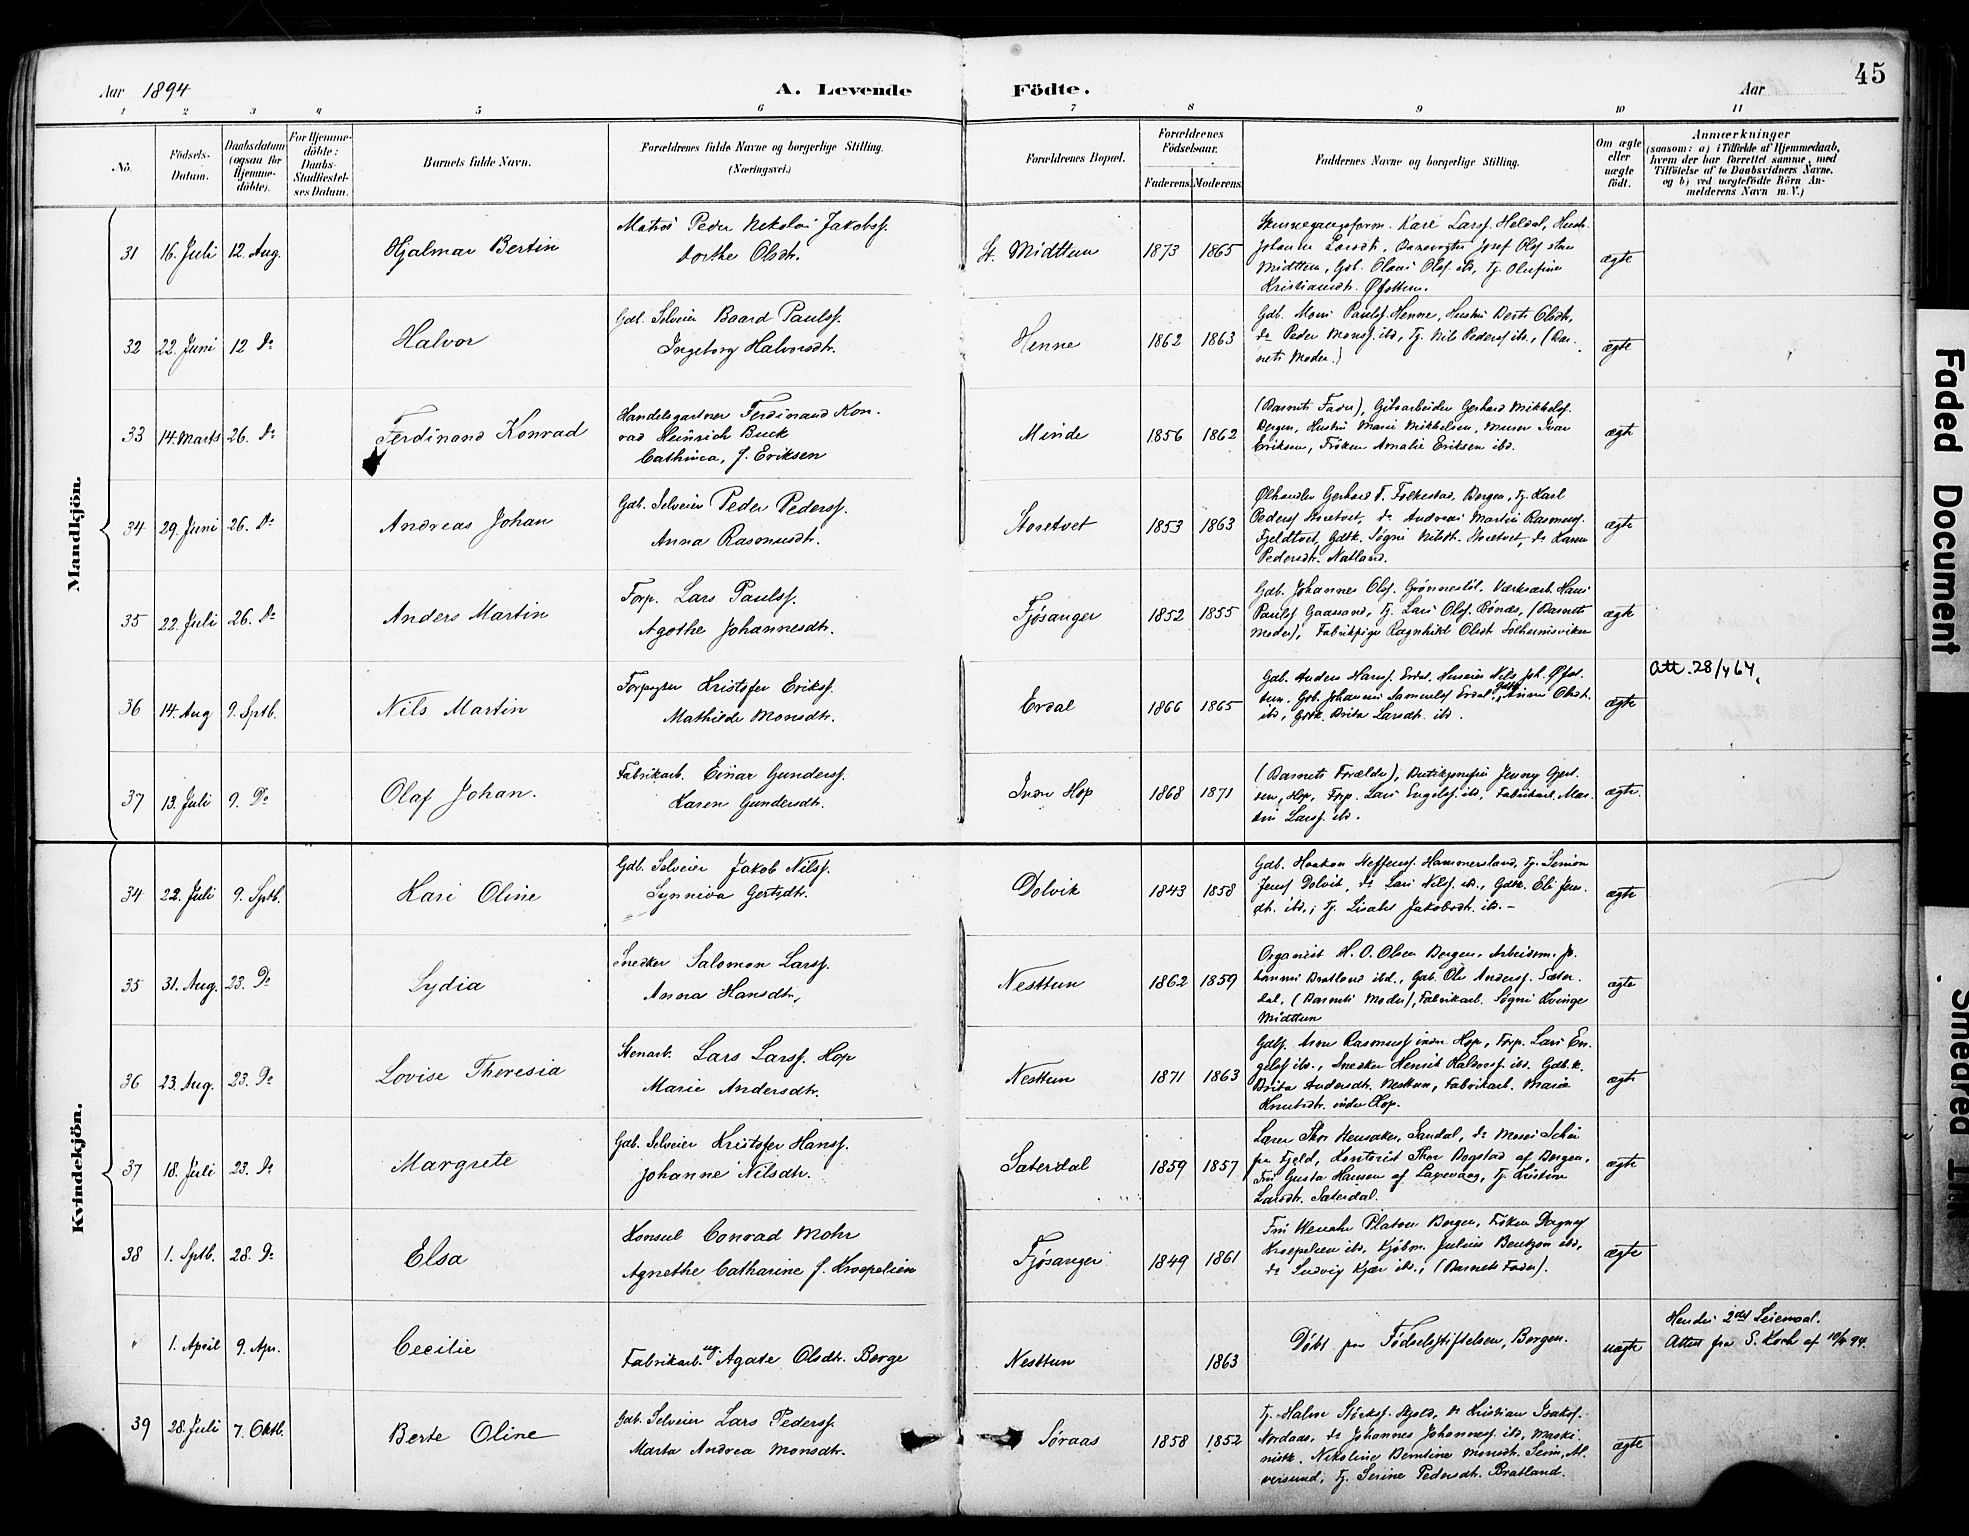 Aar 1894
A. Levende Födte.
Aar
45
1 2 3 4 5 6 7 8 9 10 11
No.
Födsels-
Datum.
Daabsdatum
(ogsaa for
Hjemme-
döbte).
For Hjemme-
döbte:
Daabs-
Stadfæstel-
ses Datum.
Barnets fulde Navn.
Forældrenes fulde Navne og borgerlige Stilling.
(Næringsvei.)
Forældrenes Bopæl.
Forældrenes
Födselsaar.
Faderens. Moderens.
Faddernes Navne og borgerlige Stilling.
Om ægte
eller
uægte
födt.
Anmærkninger
(saasom: a) i Tilfælde af Hjemmedaab,
hvem der har forrettet samme, med
Tilföielse af to Daabsvidners Navne,
og b) ved uægtefödte Börn An-
melderens Navn m. V.)
Mandkjön.
31 16. Juli 12. Aug. Hjalmar Bertin
Matros Peder Nekolai Jakobss.
Dorthe Olsdtr.
St. Midttun 1873 1865
Karl Larss. Heldal, Hustr.
Johanne Larsdtr., Banevogter Josef Olss. store
Midttun, Gdb. Olaus Olss. ibd., Tj. Olufine
Kristiansdtr. Øfsttun.
ægte
32 22. Juni 12 Do Halvor
Gdb. Selveier Baard Paulss.
Ingeborg Halvorsdtr.
Henne 1862 1863
Gdb. Mons Paulss. Henne, Hustru Berte Olsdtr.,
Do Peder Monss. ibd., Tj. Nils Pederss. ibd., (Bar-
nets Moder.)
ægte
33 14. Marts 26. Do Ferdinand Konrad
Handelsgartner Ferdinand Kon-
rad Heinrich Buck
Cathinca, f. Eriksen
Minde 1856 1862
(Barnets Fader), Gibsarbeider Gerhard Mikkelss.
Bergen, Hustru Marie Mikkelsen, Murer Ivar
Eriksen, Frøken Amalie Eriksen ibd.
ægte
34 29. Juni 26. Do Andreas Johan
Gdb. Selveier Peder Pederss.
Anna Rasmusdtr.
Storetvet 1853 1863
Ølhandler Gerhard T. Folkestad, Bergen, Tj. Karl
Pederss. Storetvet, Do Andreas Martin Rasmuss.
Fjeldtvet, Gdtk. Søgni Nilsdtr. Storetvet, Do Karen
Pedersdtr. Natland.
ægte
35 22. Juli 26. Do Anders Martin
Forp. Lars Paulss.
Agothe Johannesdtr.
Fjøsanger 1852 1855
Gdb. Johannes Olss. Grønnestøl, Værksarb. Hans
Paulss. Gaassand, Tj. Lars Olss. Rønds, (Barnets
Moder), Fabrikpige Ragnhild Olsdtr. Solheimsviken
ægte
36 14. Aug 9. Sptb. Nils Martin
Forpagter Kristofer Erikss.
Mathilde Monsdtr.
Erdal 1866 1865
Gdb. Anders Hanss. Erdal, Huseier Nils Joh. Øfst-
tun, Gdb. Johannes Samuelss. Erdal, Gdtk. Olsdtr.
ibd., Gdtk. Brita Larsdtr. ibd.
ægte
Att. 28/4 64.
37 13. Juli 9. Do Olaf Johan.
Fabrikarb. Einar Gunderss.
Karen Gundersdtr.
Indr Hop 1868 1871
(Barnets Forældre), Butikjomfru Jenny Gjert-
sen, Hop, Forp. Lars Engelss. ibd., Fabrikarb. Mar-
tin Larss. ibd.
ægte
Kvindekjön.
34 22. Juli 9. Sptb. Kari Oline
Gdb. Selveier Jakob Nilss.
Synniva Gertsdtr.
Dolvik 1843 1858
Gdb. Haakon Steffenss. Hammersland, Tj. Simon
Jenss. Dolvik, Do Lars Nilss. ibd., Gdtk. Eli Jens-
dtr. ibd., Tj. Lisabet Jakobsdtr. ibd.
ægte
35 31. Aug. 23. Do Lydia
Snedker Salomon Larss.
Anna Hansdtr.
Nesttun 1862 1859
Organist H. O. Olsen Bergen, Arbeidsm. Jo-
hannes Bratland ibd., Gdb. Ole Anderss. Sæter-
dal, (Barnets Moder), Fabrikarb. Søgni Kvinge
Midttun
ægte
36 23. Aug. 23. Do Lovise Theresia
Stenarb. Lars Larss. Hop
Marie Andersdtr.
Nesttun 1871 1863
Gdfs. Arne Rasmuss. indre Hop, Forp. Lars En-
gelss. ibd., Snedker Henrik Halvorss. ibd. Gdb.k.
Brita Andersdtr. Nesttun, Fabrikarb. Maria
Knutsdtr. indre Hop.
ægte
37 18. Juli 23. Do Margrete
Gdb. Selveier Kristofer Hanss.
Johanne Nilsdtr.
Saterdal 1859 1857
Lærer Thor Hensaker, Sandal, Do Moses
fra Fjeld, Kontorist Thor Bogstad af Bergen,
Frk. Gusta Hansen af Laxevaag, Tj. Kristine
Larsdtr. Saterdal.
ægte
38 1. Sptb. 28. Do Elsa
Konsul Conrad Mohr
Agnethe Catharine f. Kroepelien
Fjøsanger 1849 1861
Fru Wenche Platou Bergen, Frøken Dagny
Kroepelien ibd., Kjøbm. Julius Bentzon ibd.,
Do Ludvig Kjær ibd., (Barnets Fader).
ægte
" 1. April 9. Apr. Cecilie
Fabrikarb. ug. Agate Olsdtr. Berge
Nesttun 1863
Døbt paa Fødselsstiftelsen, Bergen.
uægte
Hendes 2det Leiemaal.
Attest fra S. Koch af 10/4 94.
39 28. Juli 7. Oktb. Berte Oline
Gdb. Selveier Lars Pederss.
Marta Andrea Monsdtr.
Søraas 1858 1852
Tj. Halvor Størkss. Skjold, Do Kristian Isakss.
Nordaas, Do Johannes Johanness. ibd., Maski-
nistk. Nikoline Berntine Monsdtr. Seim, Al-
versund, Tj. Serine Pedersdtr. Bratland.
ægte
Faded Document
Smeared Ink